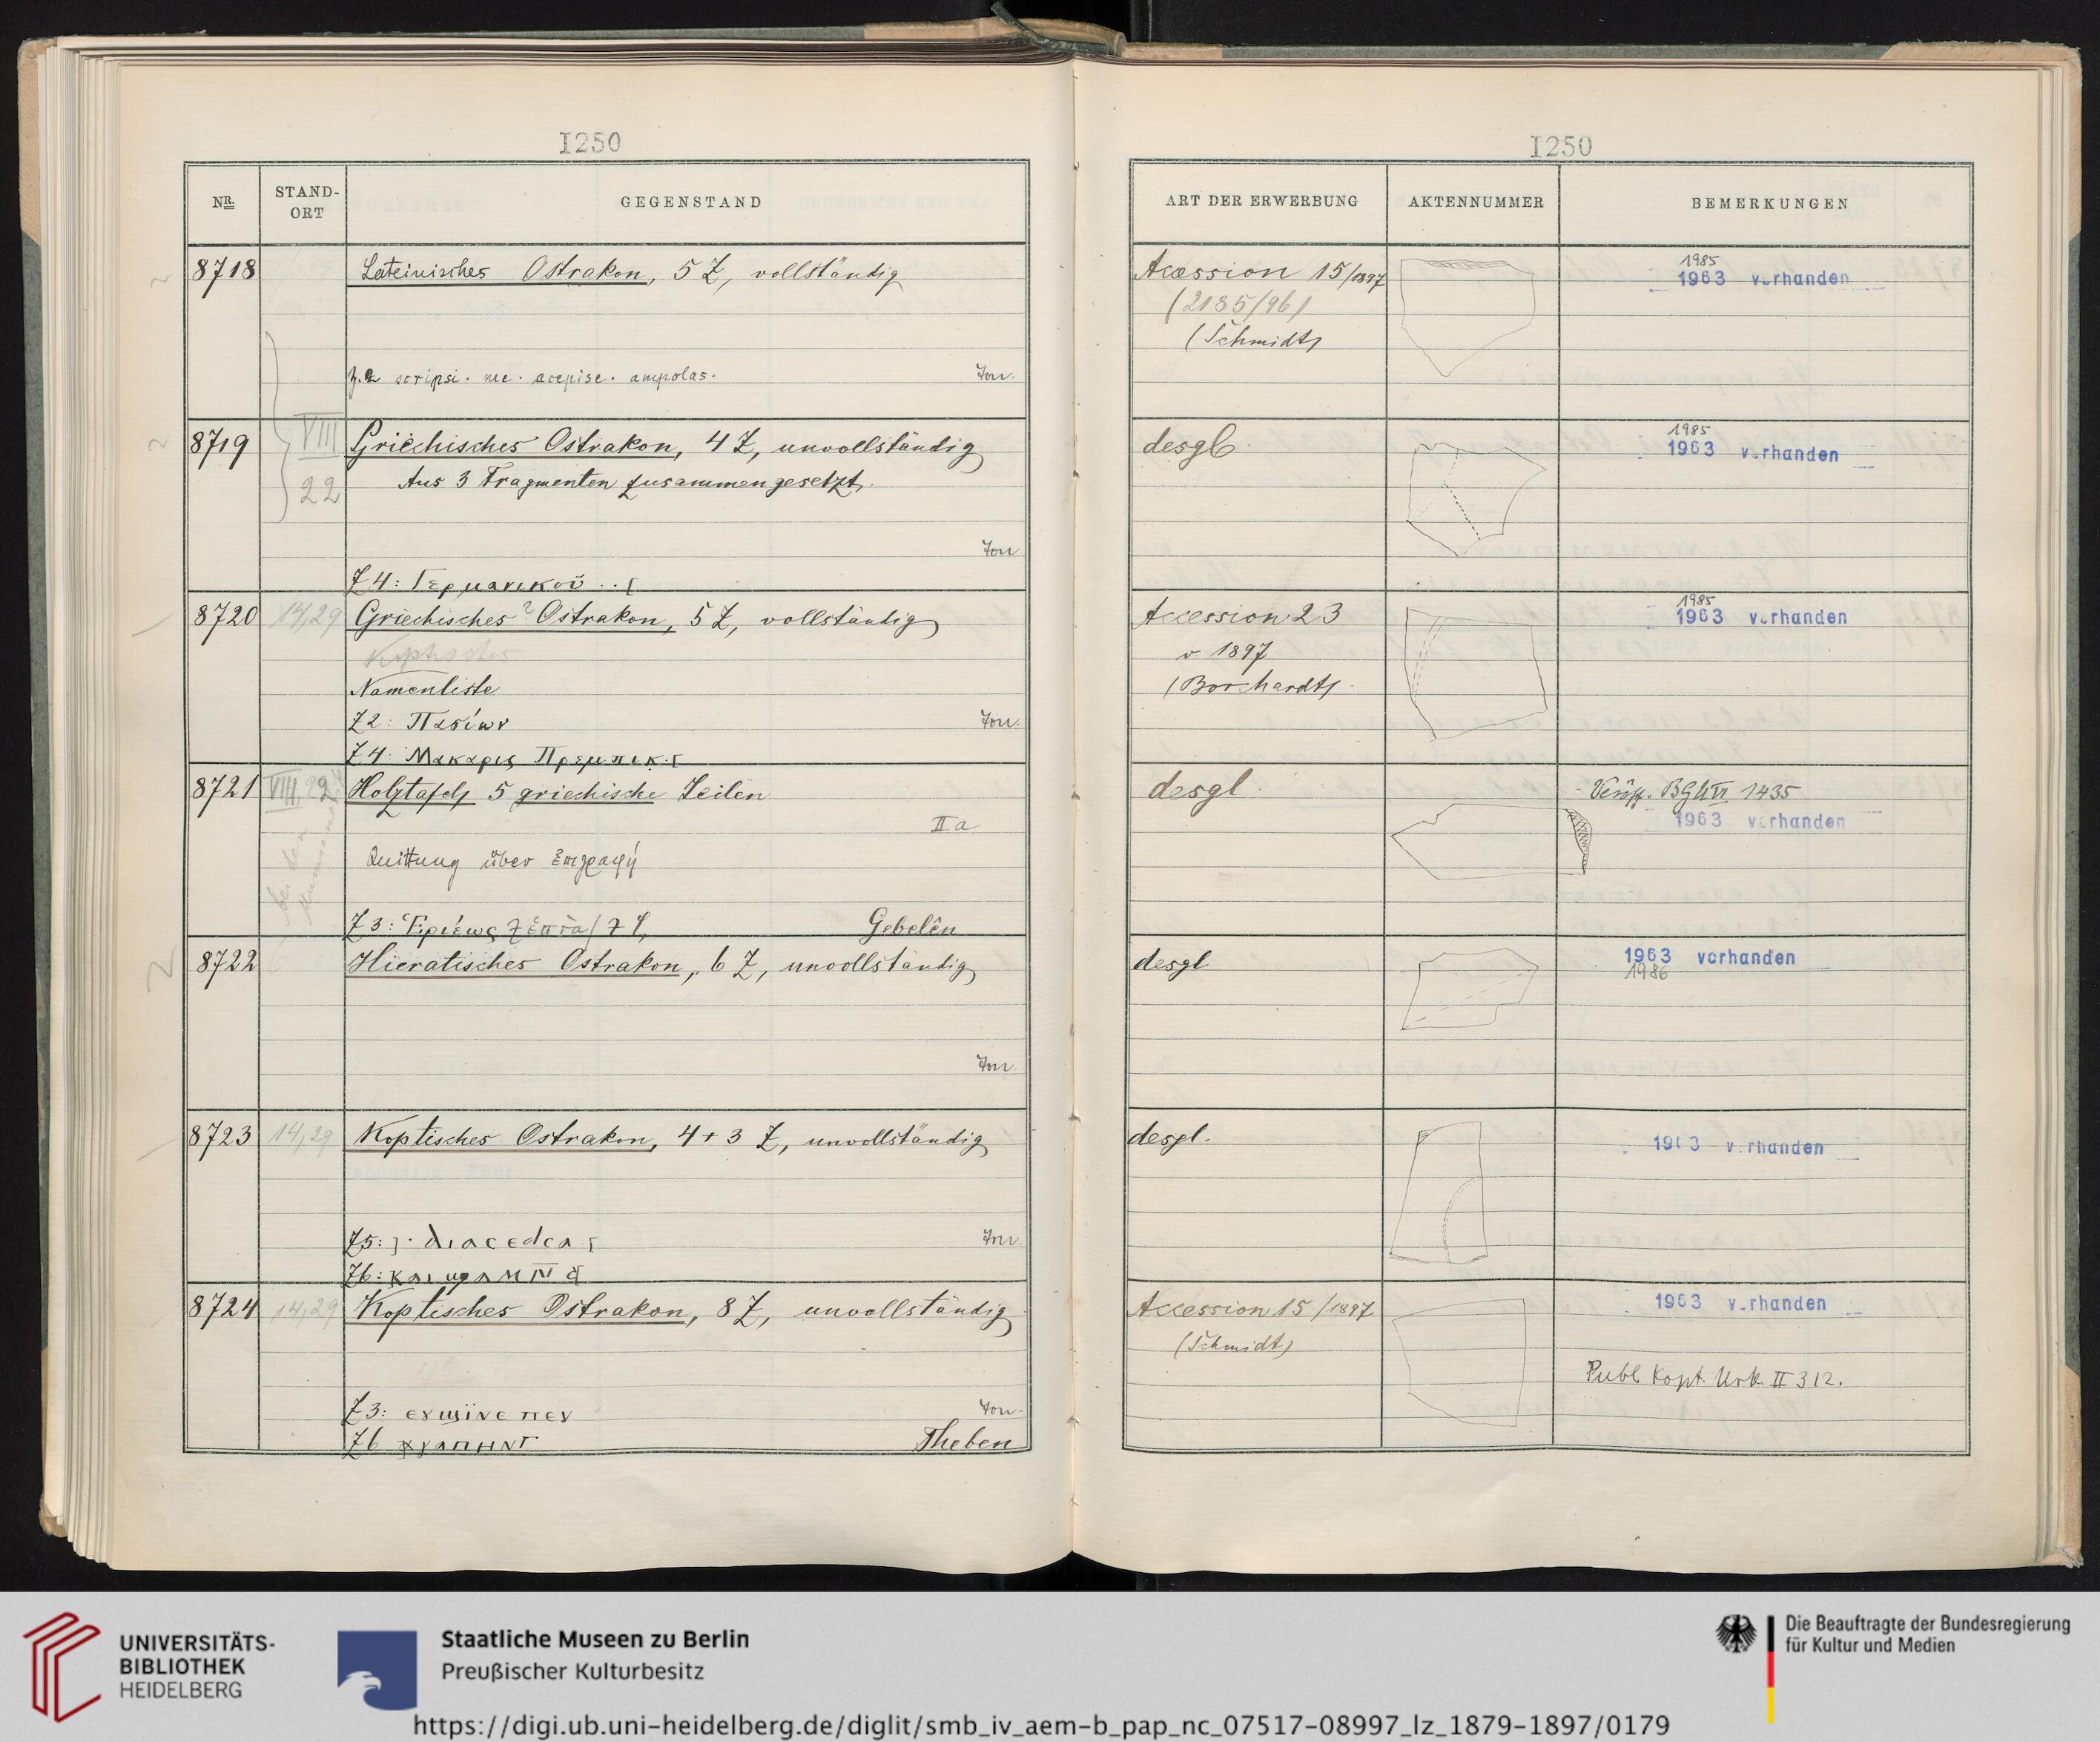 1250
NR.
STAND-
ORT
GEGENSTAND
8718
Lateinisches Ostrakon, 5 Z, vollständig
Z.2 scripsi. me. acepise. ampolas.
Ton.
8719
VIII
22
Griechisches Ostrakon, 4 Z, unvollständig
Aus 3 Fragmenten zusammengesetzt.
Ton
Z 4: Γερμανικοῦ ..[
8720
14,29
Griechisches? Ostrakon, 5 Z, vollständig
Koptisches
Namenliste
Z 2: Πασίων
Ton.
Z 4:
8721
VIII, 29
Holztafel, 5 griechische Zeilen
II a
Quittung über ἐπιγραφή
Z 3:
Gebelên
8722
Hieratisches Ostrakon, 6 Z, unvollständig
Ton.
8723
14,29
Koptisches Ostrakon, 4+3 Z, unvollständig
Z 5:
Ton.
Z 6:
8724
14,29
Koptisches Ostrakon, 8 Z, unvollständig
Z 3:
Ton.
Z 6
Theben
1250
ART DER ERWERBUNG
AKTENNUMMER
BEMERKUNGEN
Accession 15/1897
(2185/96)
(Schmidt)
1985
1963 vorhanden
desgl.
1985
1963 vorhanden
Accession 23
v. 1897
(Borchardt)
1985
1963 vorhanden
desgl.
Veröff. BGU VI 1435
1963 vorhanden
desgl
1963 vorhanden
1986
desgl.
1963 vorhanden
Accession 15/1897
(Schmidt)
1963 vorhanden
Publ. Kopt. Urk. II 312.
UNIVERSITÄTS-
BIBLIOTHEK
HEIDELBERG
Staatliche Museen zu Berlin
Preußischer Kulturbesitz
Die Beauftragte der Bundesregierung
für Kultur und Medien
https://digi.ub.uni-heidelberg.de/diglit/smb_iv_aem-b_pap_nc_07517-08997_lz_1879-1897/0179